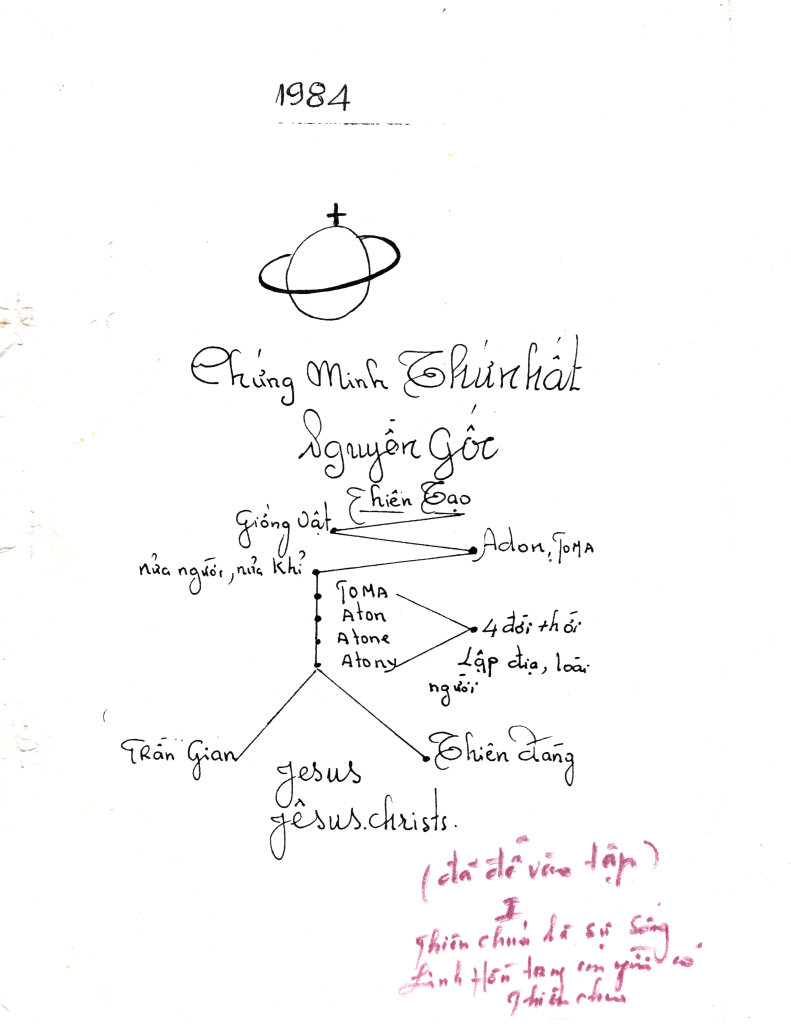 1984
Chứng Minh Thứ nhất
Nguyên Gốc
Thiên Tạo
Giống Vật
Adon, TOMA
nửa người, nửa Khỉ
TOMA
Aton
Atone
Atony
4 đời thời
Lập địa, loài
người
Trần Gian
Thiên đàng
Jesus
Jêsus.christs.
(đã để vào tập)
I
Thiên chúa là sự sống
Linh Hồn trong con người có
Thiên chúa